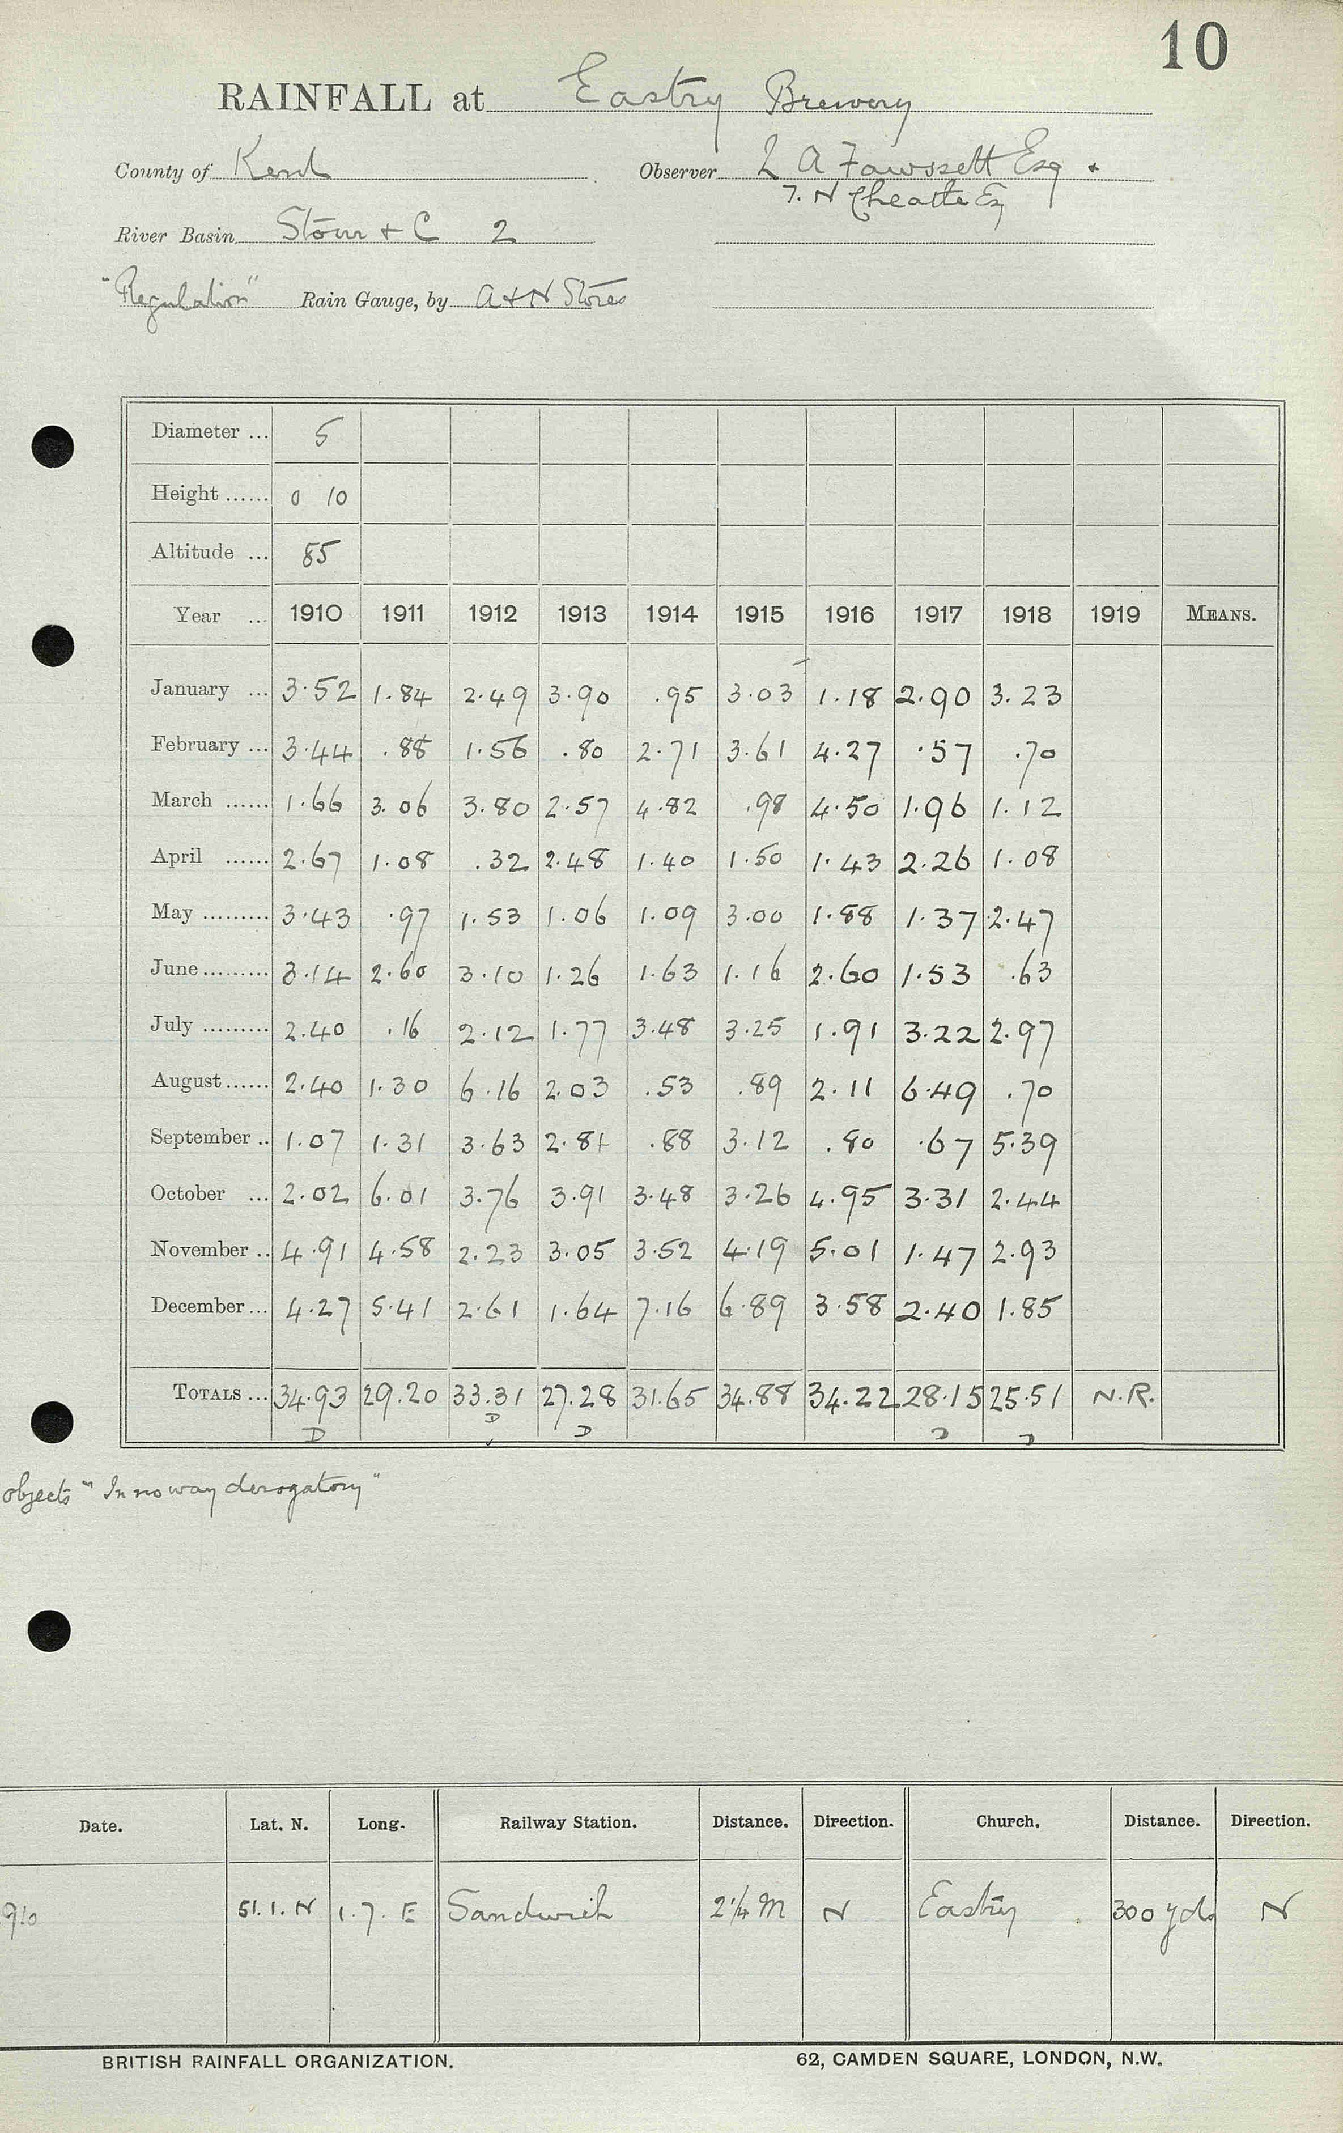 10
RAINFALL at Eastry Brewery
County of Kent Observer L A Fawssett Esq +
T. N Cheatle Esq
River Basin Stour + C 2
"Regulation" Rain Gauge, by A + N Stores
Diameter ... 5
Height ...... 0 10
Altitude ... 85
Year ... 1910 1911 1912 1913 1914 1915 1916 1917 1918 1919 MEANS.
January ... 3.52 1.84 2.49 3.90 .95 3.03 1.18 2.90 3.23
February ... 3.44 .88 1.56 .80 2.71 3.61 4.27 .57 .70
March ...... 1.66 3.06 3.80 2.57 4.82 .98 4.50 1.96 1.12
April ...... 2.67 1.08 .32 2.48 1.40 1.50 1.43 2.26 1.08
May ......... 3.43 .97 1.53 1.06 1.09 3.00 1.88 1.37 2.47
June ......... 3.14 2.60 3.10 1.26 1.63 1.16 2.60 1.53 .63
July ......... 2.40 .16 2.12 1.77 3.48 3.25 1.91 3.22 2.97
August ...... 2.40 1.30 6.16 2.03 .53 .89 2.11 6.49 .70
September .. 1.07 1.31 3.63 2.81 .88 3.12 .80 .67 5.39
October ... 2.02 6.01 3.76 3.91 3.48 3.26 4.95 3.31 2.44
November .. 4.91 4.58 2.23 3.05 3.52 4.19 5.01 1.47 2.93
December ... 4.27 5.41 2.61 1.64 7.16 6.89 3.58 2.40 1.85
TOTALS ... 34.93 29.20 33.31 27.28 31.65 34.88 34.22 28.15 25.51 N.R.
D D D D D
objects "In no way derogatory"
Date. Lat. N. Long. Railway Station. Distance. Direction. Church. Distance. Direction.
910 51.1.N 1.7.E Sandwich 2¼ M N Eastry 300 yds N
BRITISH RAINFALL ORGANIZATION. 62, CAMDEN SQUARE, LONDON, N.W.